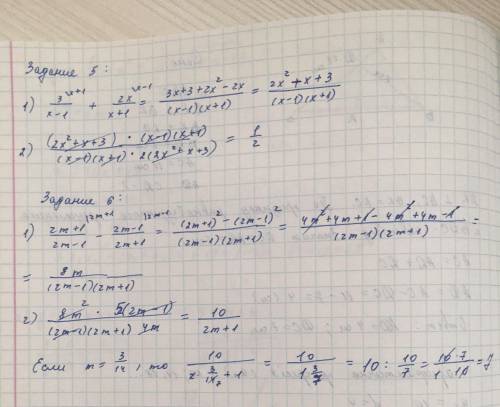 Задание 5:
1) 3/(x-1) ^(x+1) + 2x/(x+1) ^(x-1) = (3x+3+2x²-2x)/((x-1)(x+1)) = (2x²+x+3)/((x-1)(x+1))
2) ((2x²+x+3)·(x-1)(x+1))/((x-1)(x+1)·2(2x²+x+3)) = 1/2
Задание 6:
1) (2m+1)/(2m-1) ^(2m+1) - (2m-1)/(2m+1) ^(2m-1) = ((2m+1)²-(2m-1)²)/((2m-1)(2m+1)) = (4m²+4m+1-4m²+4m-1)/((2m-1)(2m+1)) =
= 8m/((2m-1)(2m+1))
2) (8m ² · 5(2m-1))/((2m-1)(2m+1) 4m) = 10/(2m+1)
Если m = 3/14, то 10/(2·3/14 ₇ + 1) = 10/(1 3/7) = 10 : 10/7 = (10·7)/(1·10) = 7